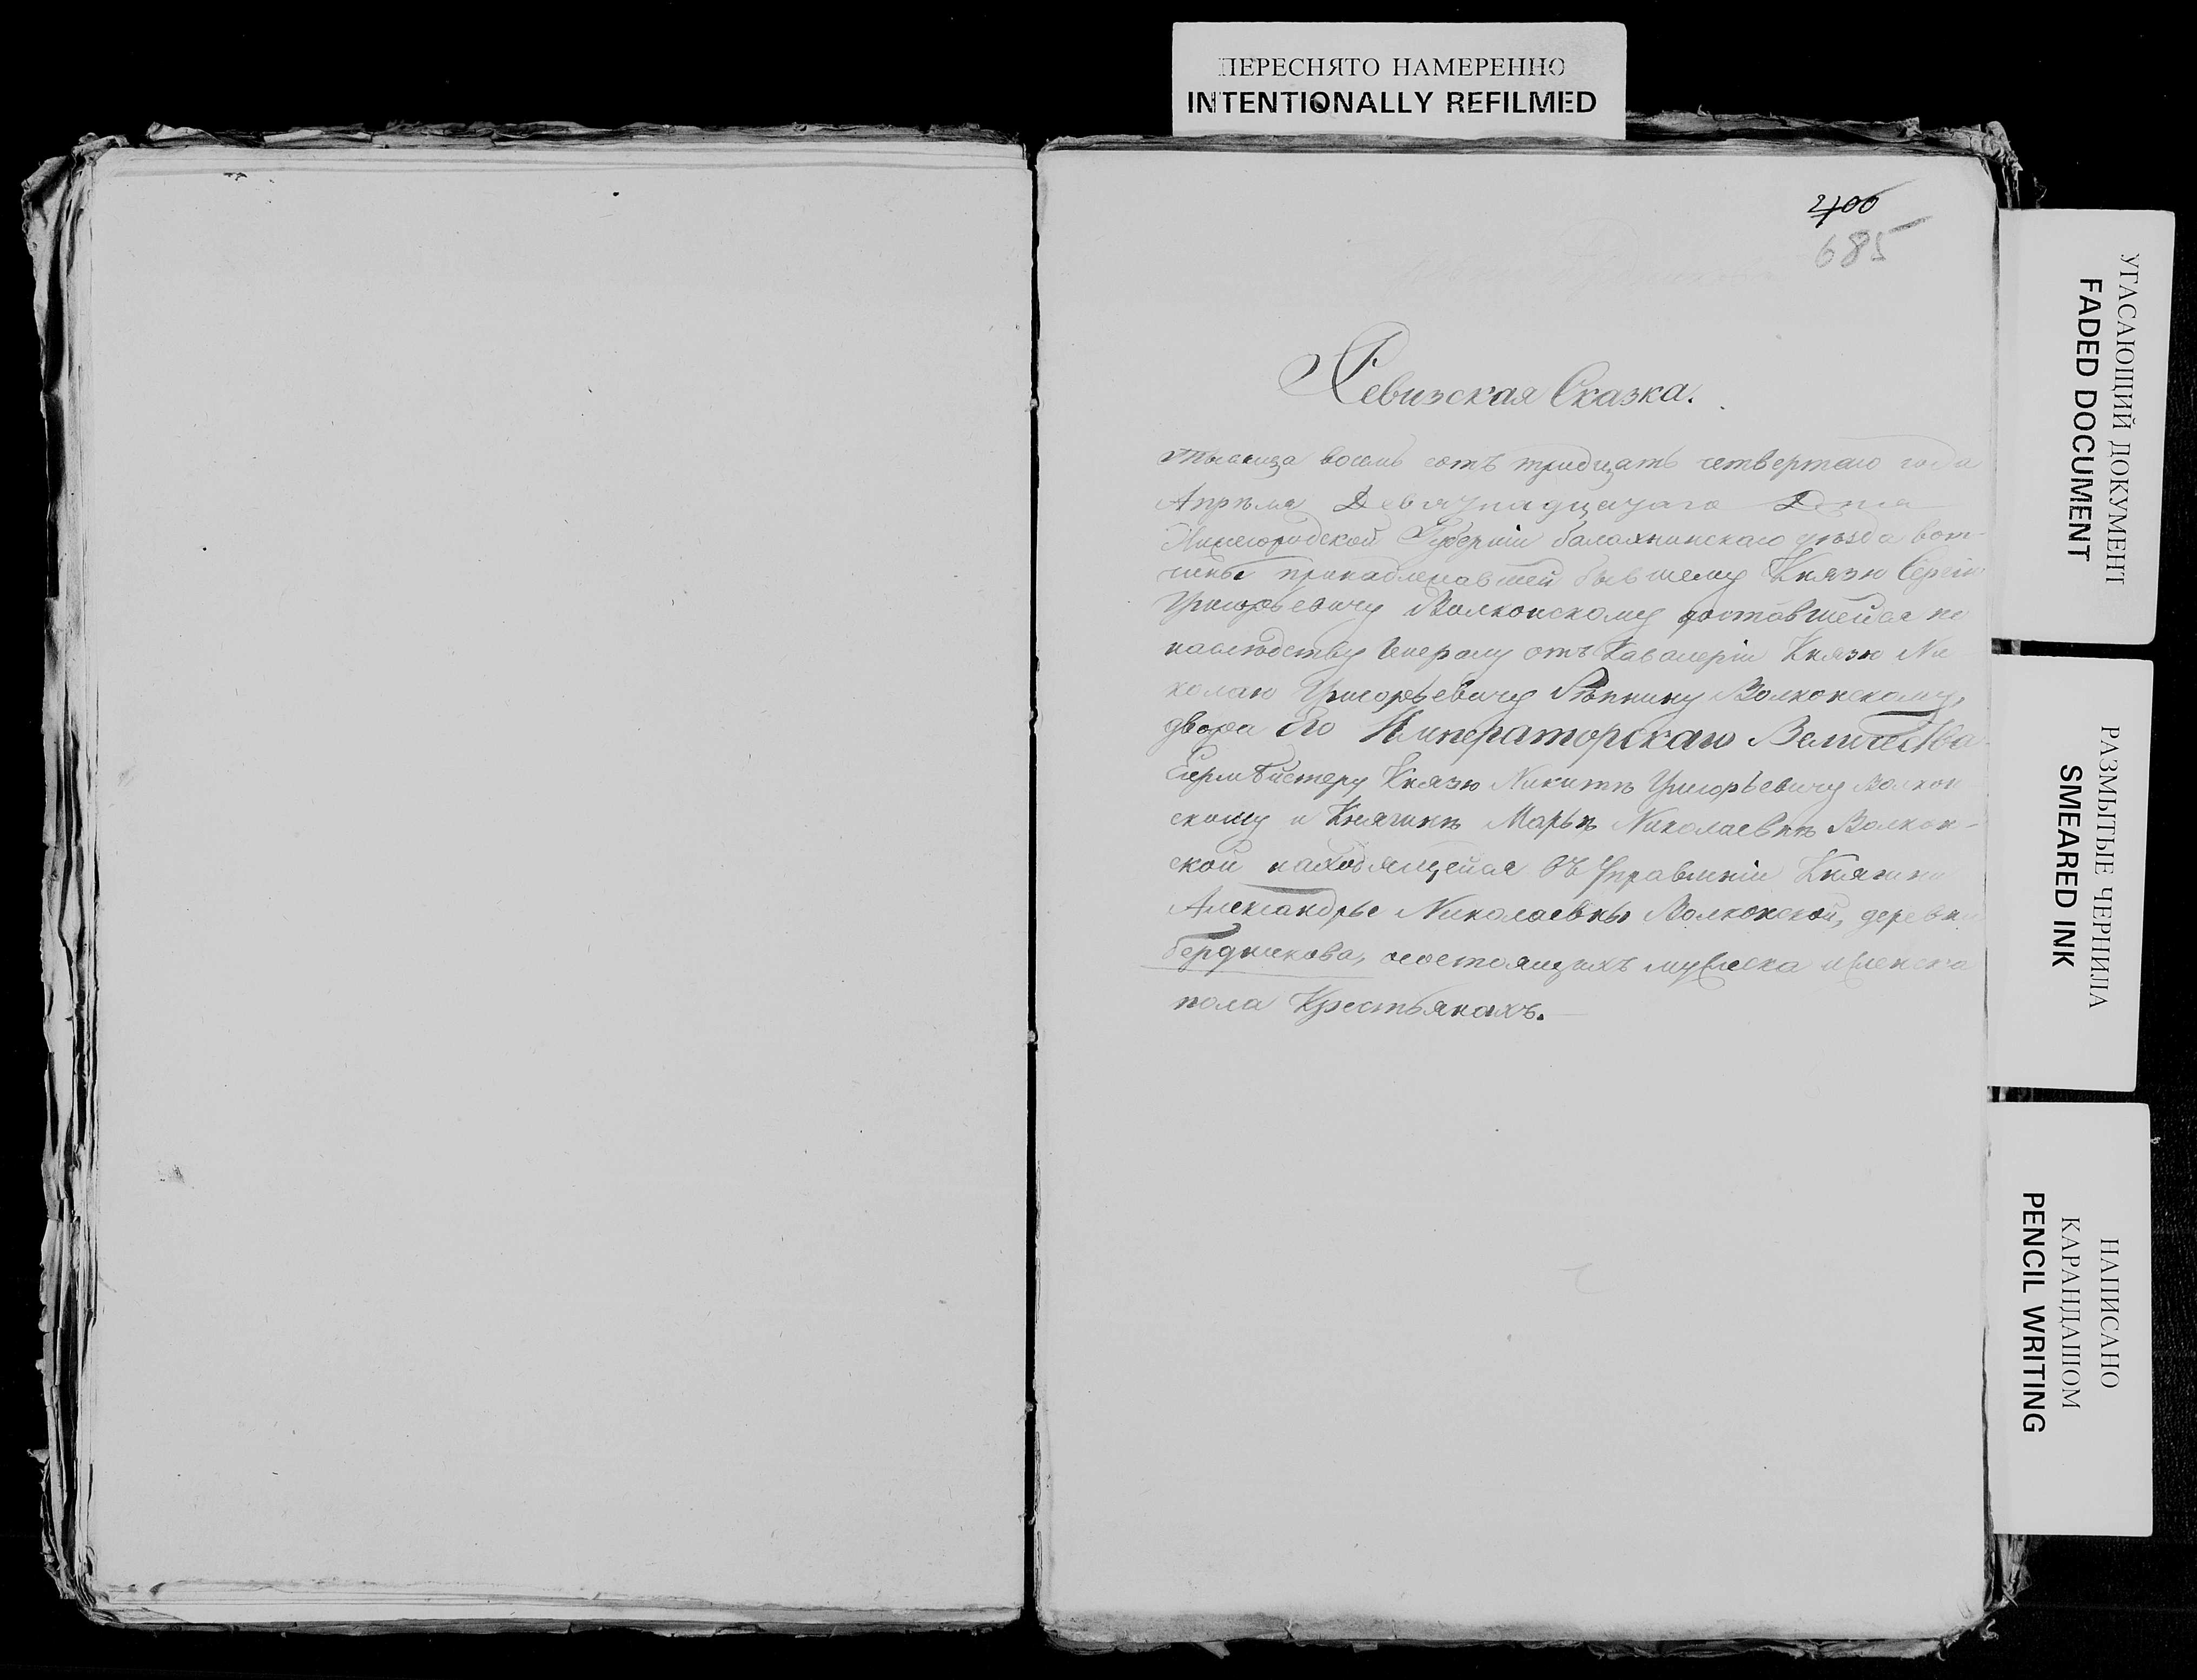 ПЕРЕСНЯТО НАМЕРЕННО
INTENTIONALLY REFILMED
2400
685
Ревизская Сказка.
тысяща восемь сотъ тридцать четвертаго года
Апрѣля Девятнадцатаго Дня
Нижегородской Губерніи балахнинскаго уѣзда вот-
чины принадлежавшей бывшему Князю Сергію
Григорьевичу Волконскому доставшейся по
наслѣдству Генералу отъ Кавалеріи Князю Ни
колаю Григорьевичу Рѣпнину Волконскому,
двора Его Императорскаго Величества
Егермѣйстеру Князю Никитѣ Григорьевичу Волкон
скому и Княгинѣ Марьѣ Николаевнѣ Волкон-
ской находящейся въ Управленіи Княгини
Александры Николаевны Волконской, деревни
бердникова, состоящихъ мужеска и женска
пола Крестьянахъ.
УГАСАЮЩИЙ ДОКУМЕНТ
FADED DOCUMENT
РАЗМЫТЫЕ ЧЕРНИЛА
SMEARED INK
НАПИСАНО
КАРАНДАШОМ
PENCIL WRITING